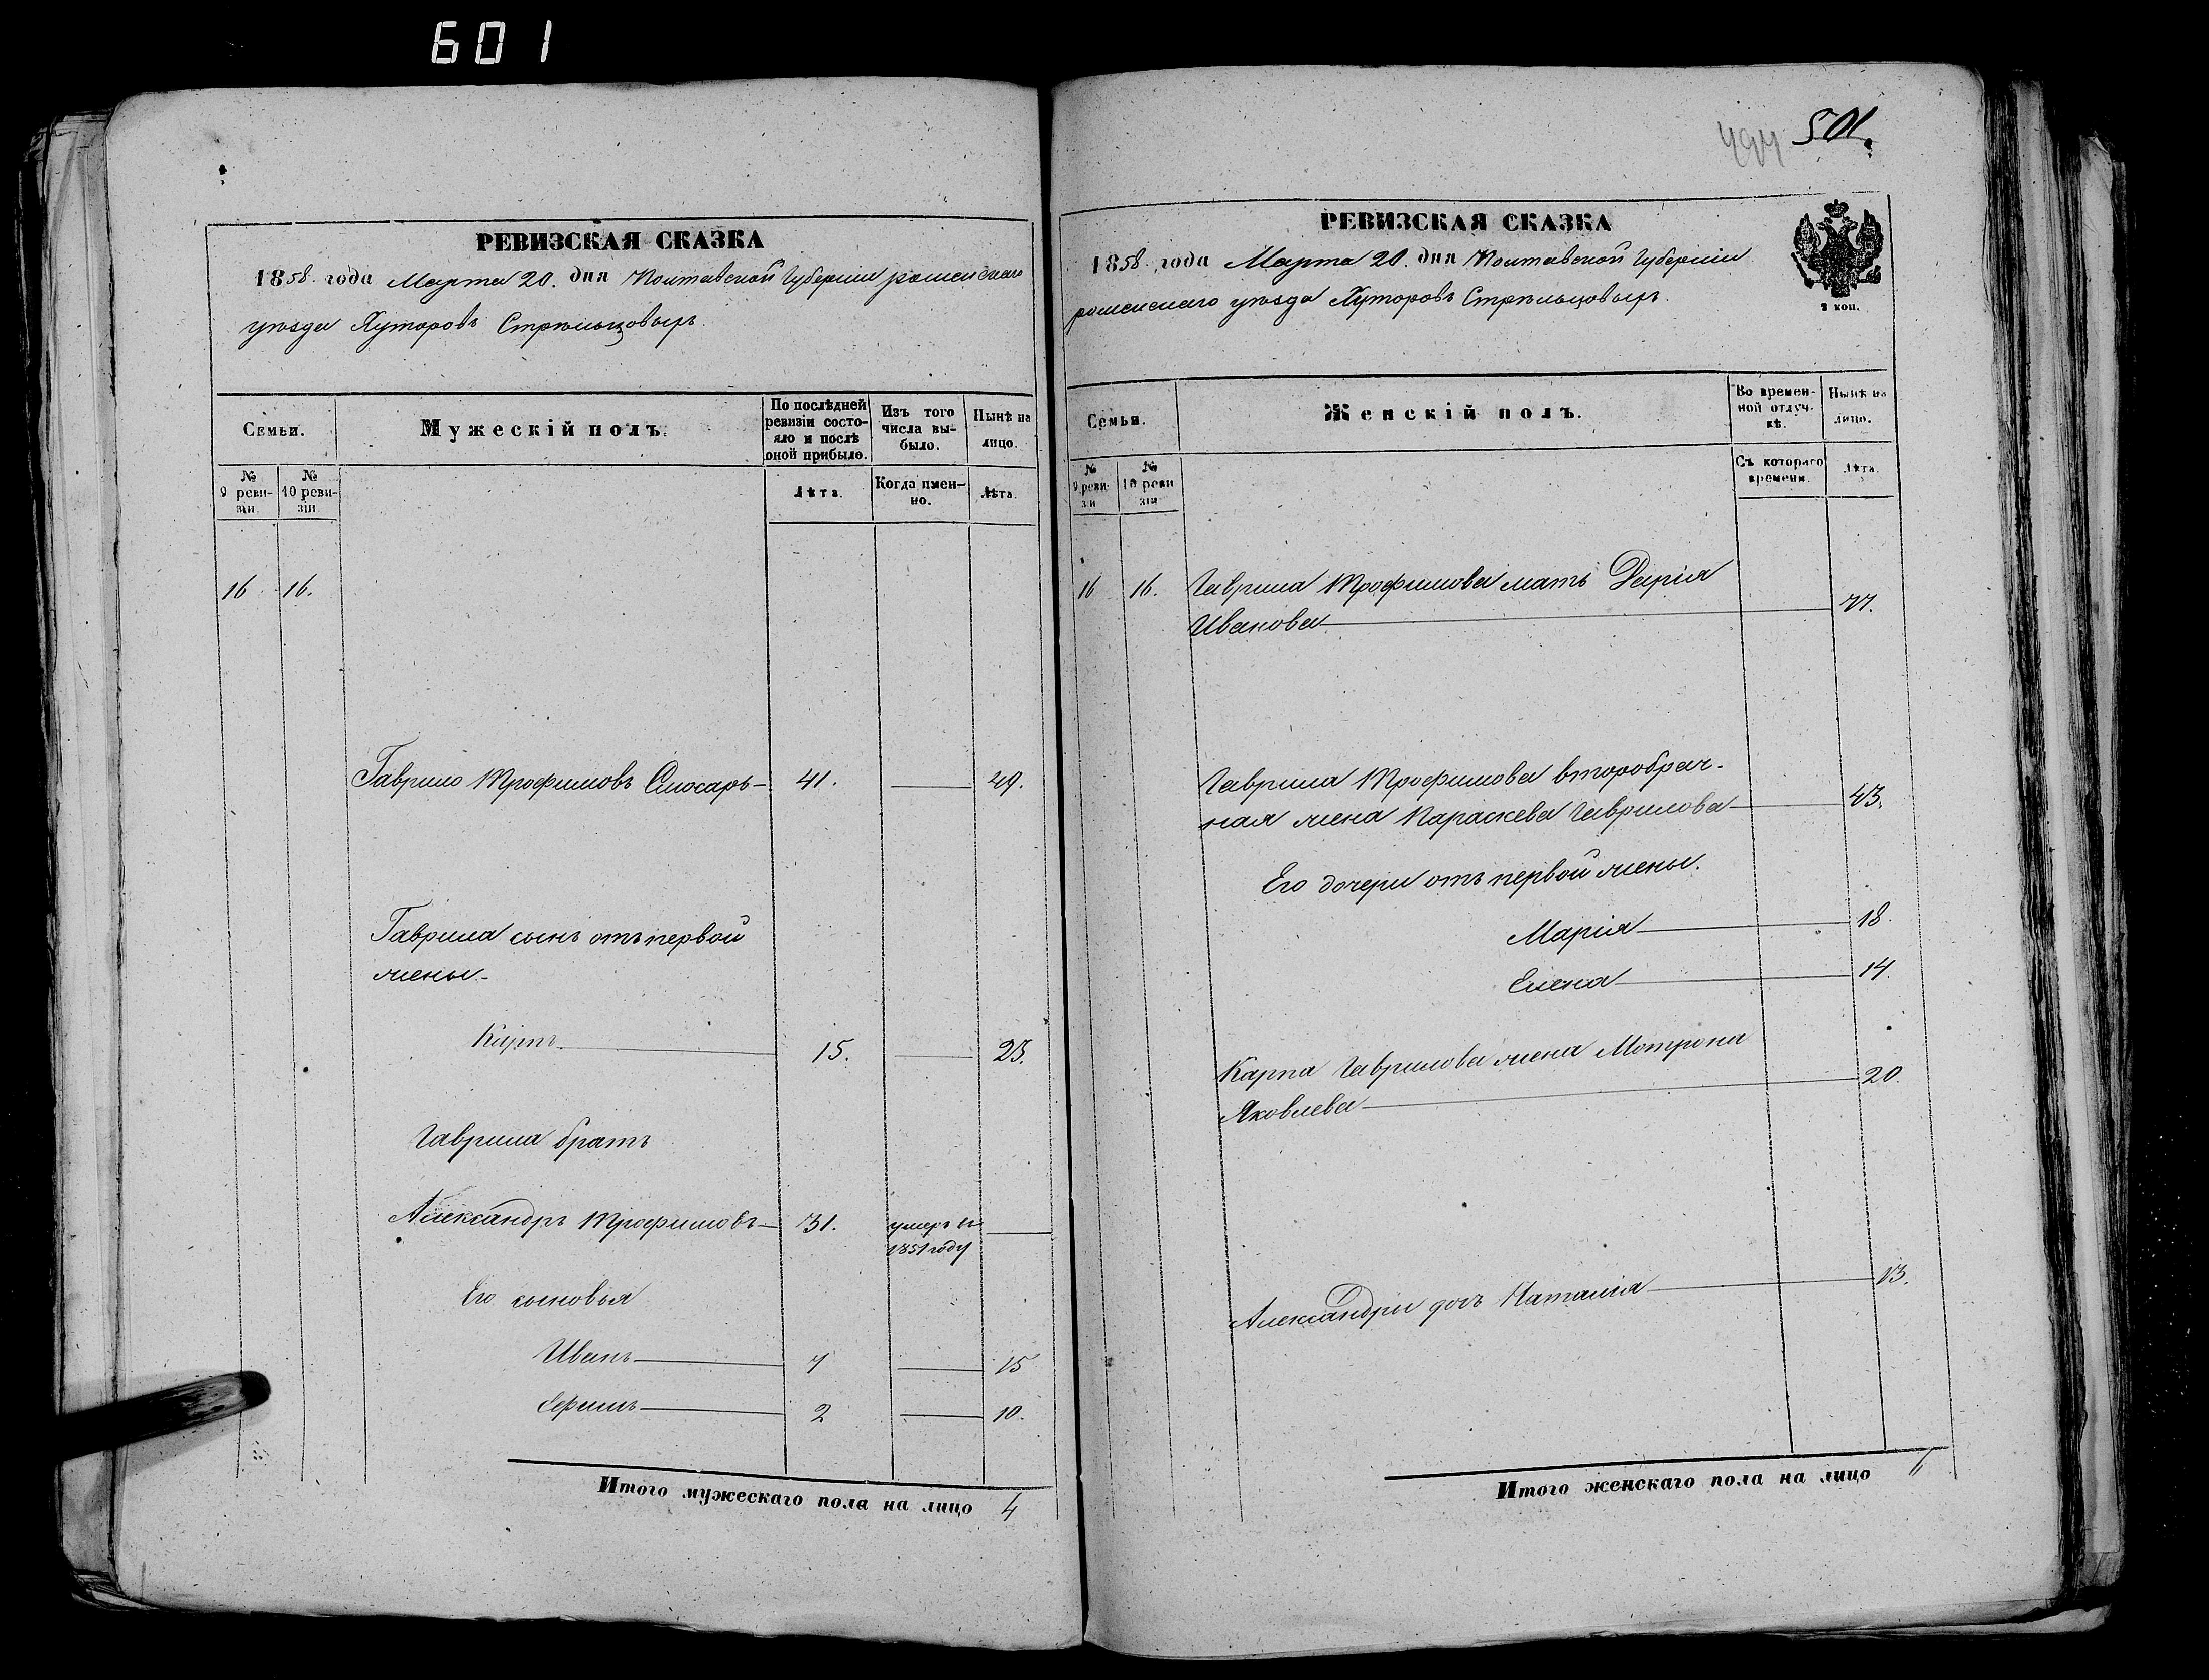 601
РЕВИЗСКАЯ СКАЗКА
1858 года Марта 20. дня Полтавской Губернiи роменскаго
уѣзда Хуторовъ Стрѣльцовыхъ.
Семьи.
Мужескій полъ.
По послѣдней ревизіи состояло и послѣ оной прибыло.
Изъ того числа выбыло.
Нынѣ на лицо.
№ 9 ревизіи
№ 10 ревизіи
Лѣта.
Когда именно.
Лѣта.
16 16.
Гаврило Трофимовъ Слюсарь — 41. — 49.
Гаврила сынъ отъ первой
жены.
Карпъ — 15. — 23.
Гаврила братъ
Александръ Трофимовъ — 31. умеръ въ
1851 году —
Его сыновья
Иванъ — 7 — 15
Ефимъ — 2 — 10.
Итого мужескаго пола на лицо 4
494 501.
РЕВИЗСКАЯ СКАЗКА
1858 года Марта 20. дня Полтавской Губернiи
роменскаго уѣзда Хуторовъ Стрѣльцовыхъ.
2 коп.
Семьи.
Женскій полъ.
Во временной отлучкѣ.
Нынѣ на лицо.
№ 9 ревизіи
№ 10 ревизіи
Съ котораго времени.
Лѣта.
16 16. Гаврила Трофимова мать Дарія
Иванова — 77.
Гаврила Трофимова второбрач-
ная жена Параскева Гаврилова — 43.
Его дочери отъ первой жены.
Марія — 18.
Елена — 14.
Карпа Гаврилова жена Мотрона
Яковлева — 20.
Александры дочь Наталія — 13.
Итого женскаго пола на лицо 6